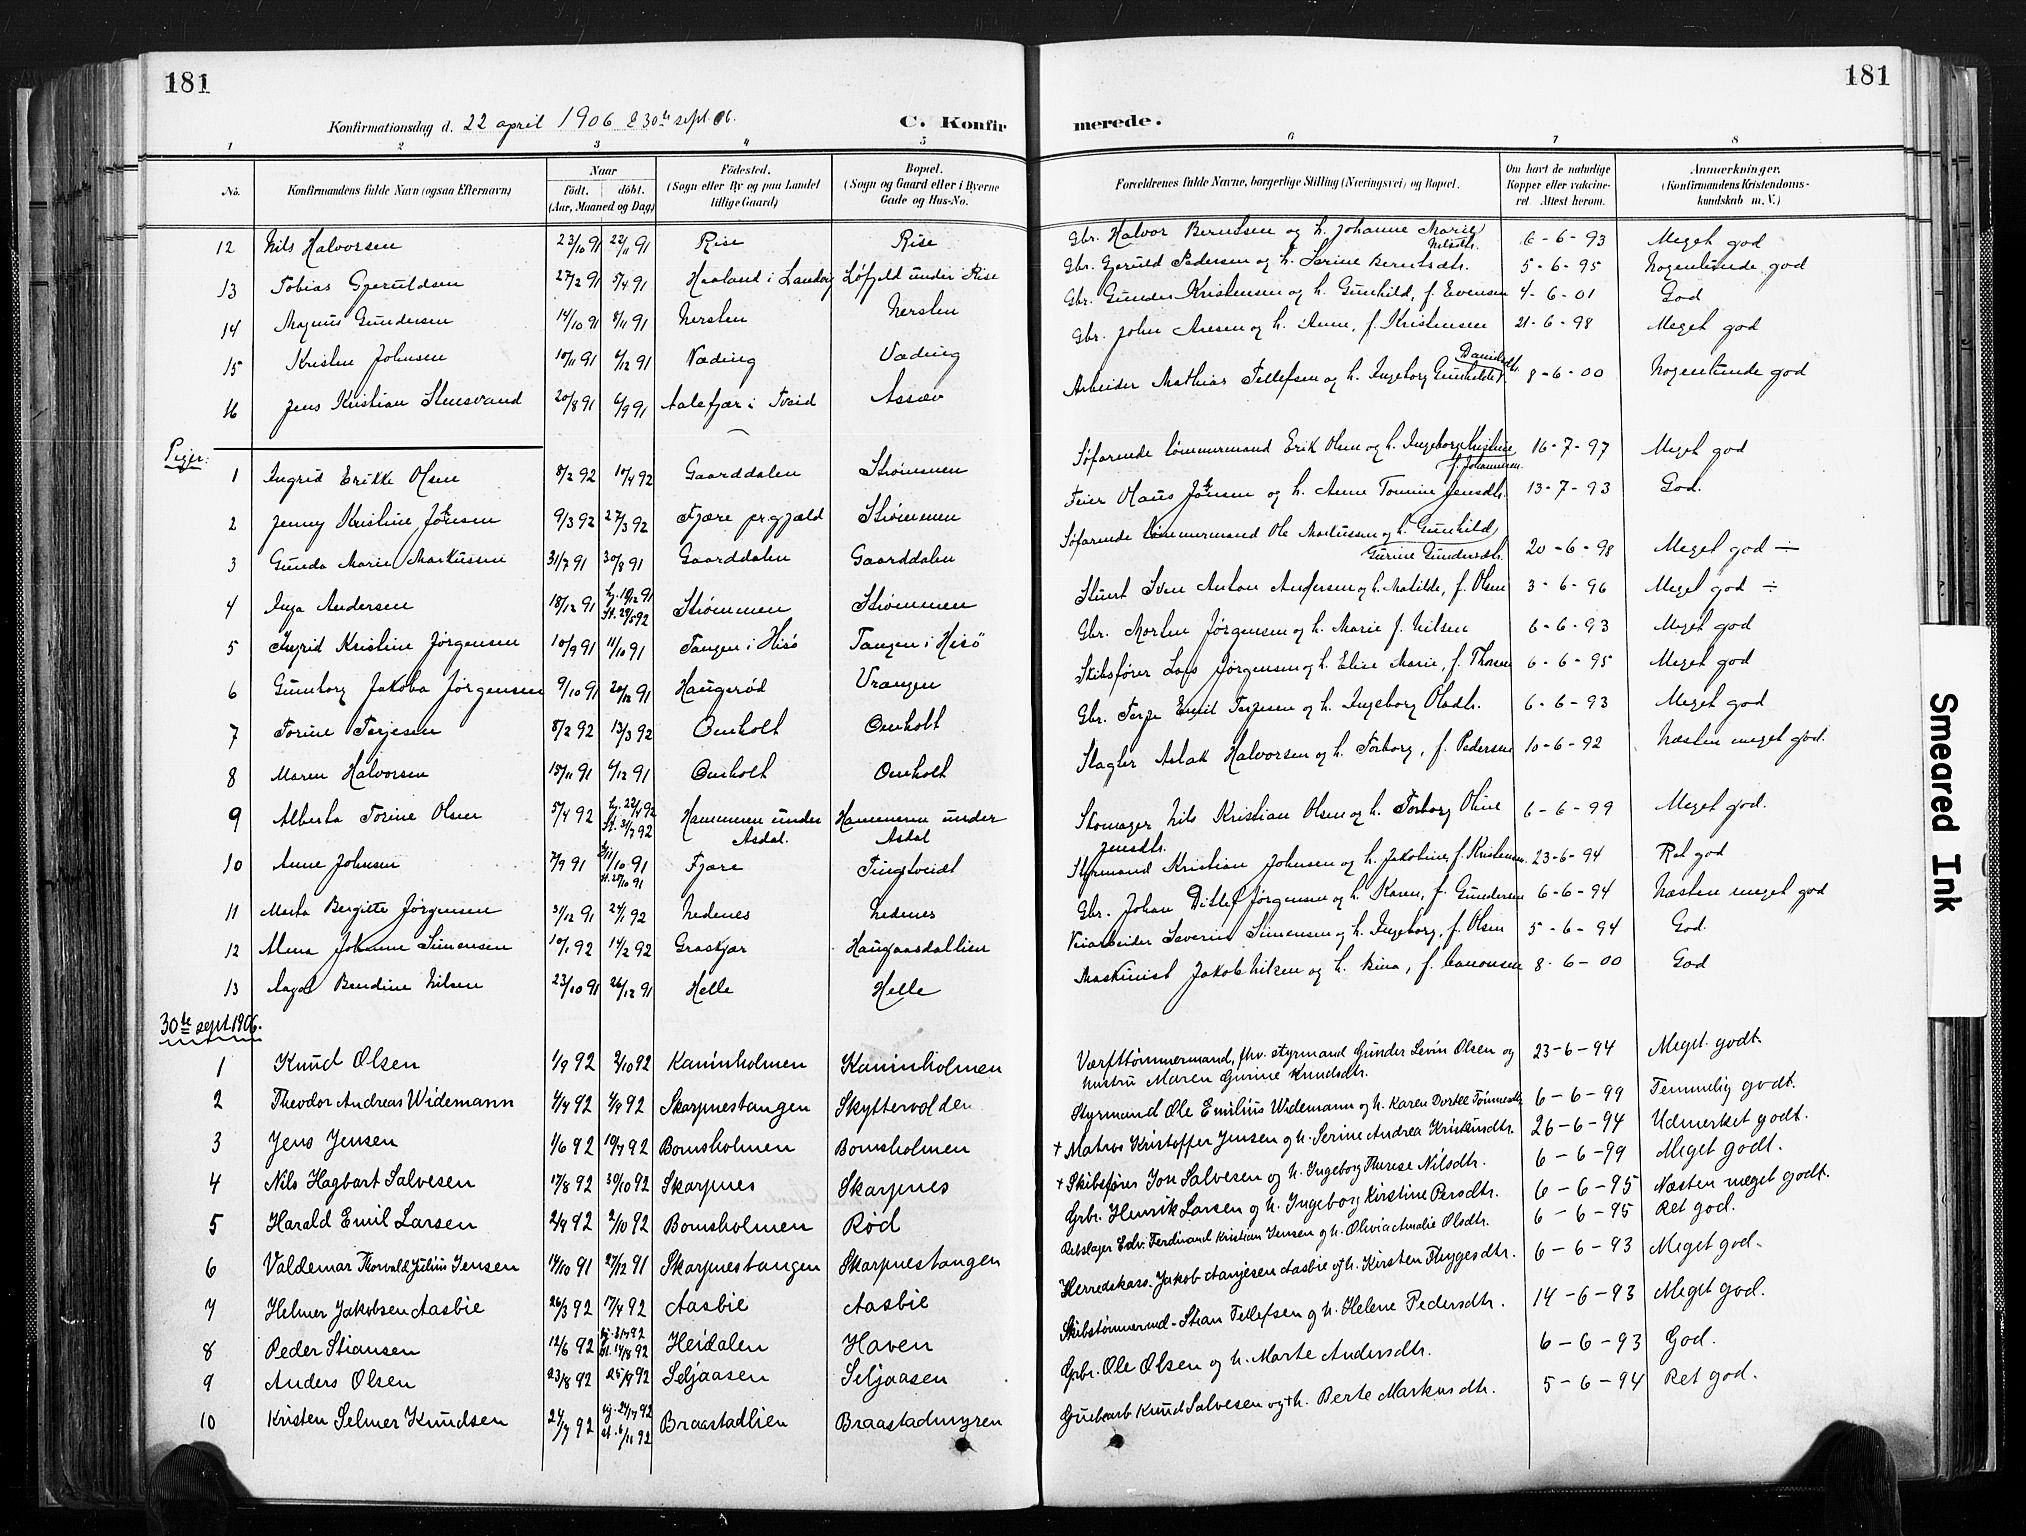 181
181
Konfirmationsdag d. 22 april 1906 & 30te sept. 06.
C. Konfirmerede.
1 2 3 4 5 6 7 8
No. Konfirmandens fulde Navn (ogsaa Efternavn) Naar födt. döbt. (Aar, Maaned og Dag) Födested. (Sogn eller By og paa Landet tillige Gaard) Bopæl. (Sogn og Gaard eller i Byerne Gade og Hus-No. Forældrenes fulde Navne, borgerlige Stilling (Næringsvei) og Bopæl. Om havt de naturlige Kopper eller vakcineret Attest herom. Anmærkninger. (Konfirmandens Kristendomskundskab m. V.)
12 Nils Halvorsen 23/10 91 22/11 91 Rise Rise Gbr. Halvor Berntsen og h. Johanne Marie Nilsdtr. 6-6-93 Meget god
13 Tobias Gjeruldsen 27/2 91 5/4 91 Haaland i Landvig Løfjeld under Rise Gbr. Gjeruld Pedersen og h. Serine Berntsdtr. 5-6-95 Nogenlunde god
14 Magnus Gundersen 14/10 91 8/11 91 Nersten Nersten Gbr. Gunder Kristensen og h. Gunhild, f. Evensen 4-6-01 God
15 Kristen Johnsen 10/11 91 6/12 91 Væding Væding Gbr. John Aresen og h. Anne, f. Kristensen 21-6-98 Meget god
16 Jens Kristian Stensvand 20/8 91 6/9 91 Aalefjær i Tveid Assæv Arbeider Mathias Tellefsen og h. Ingeborg Gunhild Danielsdtr. 8-6-00 Nogenlunde god
Piger:
1 Ingrid Erikke Olsen 8/2 92 10/4 92 Gaarddalen Strømmen Søfarende tømmermand Erik Olsen og h. Ingeborg Kristine f. Johannsen 16-7-97 Meget god
2 Jenny Kristine Johnsen 9/3 92 27/3 92 Fjære pr.gjæld Strømmen Feier Hans Johnsen og h. Anne Tomine Jensdtr. 13-7-93 God.
3 Gunda Marie Markussen 31/7 91 30/8 91 Gaarddalen Gaarddalen Søfarende tømmermand Ole Markussen og h. Gunhild Gurine Gundersdtr. 20-6-98 Meget god ÷
4 Inga Andersen 18/12 91 hj. 19/12 91 St. 29/5 92 Strømmen Strømmen Stuert Sven Anton Andersen og h. Matilde, f. Olsen 3-6-96 Meget god ÷
5 Ingrid Kristine Jørgensen 10/9 91 11/10 91 Tangen i Hisö Tangen i Hisö Gbr. Morten Jørgensen og h. Marie f. Nilsen 6-6-93 Meget god
6 Gunnborg Jakoba Jørgensen 9/10 91 20/12 91 Haugerød Vrangen Skibsfører Lars Jørgensen og h. Elise Marie, f. Thorsen 6-6-95 Meget god
7 Torine Terjesen 8/2 92 13/3 92 Omholt Omholt Gbr. Terje Emil Terjesen og h. Ingeborg Olsdtr. 6-6-93 Meget god
8 Maren Halvorsen 15/11 91 6/12 91 Omholt Omholt Slagter Aslak Halvorsen og h. Torborg, f. Pedersen 10-6-92 Næsten meget god.
9 Alberta Torine Olsen 5/4 92 hj. 22/4 92 St. 31/7 92 Hammeren under Asdal. Hammeren under Asdal Skomager Nils Kristian Olsen og h. Torborg Oline Jensdtr. 6-6-99 Meget god.
10 Anne Johnsen 7/9 91 11/10 91 St. 25/10 91 Fjære Tingtveidt Styrmand Kristian Johnsen og h. Jakobine, f. Kristensen. 23-6-94 Ret god
11 Marta Bergitte Jørgensen 31/12 91 24/1 92 Nedenes Nedenes Gbr. Johan Ditlef Jørgensen og h. Karen, f. Gundersen 6-6-94 Næsten meget god
12 Alma Johanne Simensen 10/1 92 14/2 92 Græskjær Haugaasdallien Veiarbeider Severin Simensen og h. Ingeborg, f. Olsen 5-6-94 God.
13 Aagot Bendine Nilsen 23/10 91 26/12 91 Helle Helle Maskinist Jakob Nilsen og h. Bina, f. Aanonsen 8-6-00 God
30te sept 1906.
1 Knud Olsen 1/9 92 2/10 92 Kaninholmen Kaninholmen Værfttømmermand, fhv. styrmand Gunder Levin Olsen og hustru Maren Gurine Knudsdtr. 23-6-94 Meget godt.
2 Theodor Andreas Widemann 4/4 92 4/9 92 Skarpnestangen Skyttervolden Styrmand Ole Emilius Widemann og h. Karen Dortee Tønnesdtr. 6-6-99 Temmelig godt.
3 Jens Jensen 1/6 92 10/7 92 Bomsholmen Bomsholmen + Matros Kristoffer Jensen og h. Serine Andrea Kristensdtr. 26-6-94 Udmerket godt.
4 Nils Hagbart Salvesen 17/8 92 30/10 92 Skarpnes Skarpnes + Skibsfører Jon Salvesen og h. Ingeborg Therese Nilsdtr. 6-6-99 Meget godt.
5 Harald Emil Larsen 2/9 92 2/10 92 Bomsholmen Rød Grbr. Henrik Larsen og h. Ingeborg Kirstine Persdtr. 6-6-95 Næsten meget godt.
6 Valdemar Thorvald Julius Jensen 14/10 91 27/12 91 Skarpnestangen Skarpnestangen Rebslager Edv. Ferdinand Kristian Jensen og h. Olivia Amalie Olsdtr. 6-6-95 Ret god.
7 Helmer Jakobsen Aasbie 26/3 92 17/4 92 Aasbie Aasbie Herredskass. Jakob Aanjesen Aasbie og h. Kirsten Thygesdtr. 6-6-93 Meget god.
8 Peder Stiansen 12/6 92 hj. 31/7 92 St. 14/8 92 Heidalen Haven Skibstømmermd. Stian Tellefsen og h. Helene Pedersdtr. 14-6-93 Meget god.
9 Anders Olsen 23/8 92 25/9 92 Seljaasen Seljaasen Grbr. Ole Olsen og h. Marte Andersdtr. 6-6-93 God.
10 Kristen Selmer Knudsen 24/7 92 hj. 24/7 92 st. 6/11 92 Braastadlien Braastadmyren Grubearb Knud Salvesen og +h. Berte Markusdtr. 5-6-94 Ret god.
Smeared Ink